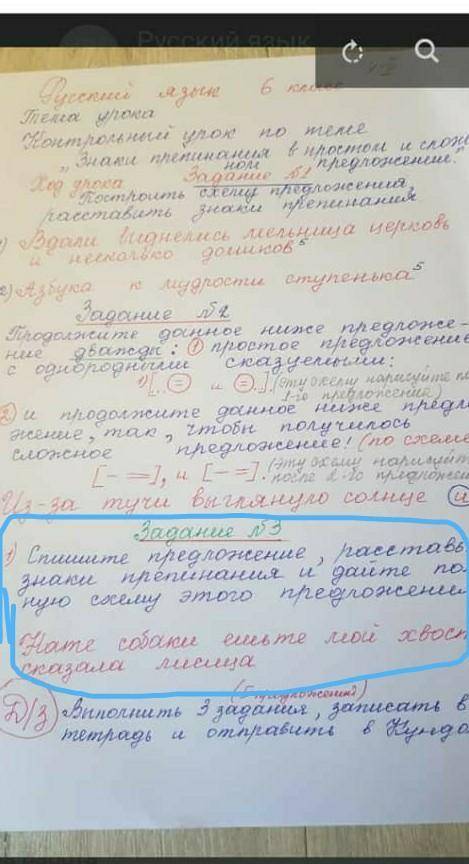 Русский язык
Русский язык 6 класс
Тема урока
Контрольный урок по теме
„Знаки препинания в простом и слож
ном предложении."
Ход урока Задание №1
Построить схему предложения,
расставить знаки препинания
1) Вдали виднелись мельница церковь
и несколько домиков⁵
2) Азбука к мудрости ступенька⁵
Задание №2
Продолжите данное ниже предложе-
ние дважды: ① простое предложение
с однородными сказуемыми:
1) [... = и =.]. (Эту схему нарисуйте по
1-го предложения)
② и продолжите данное ниже предло
жение, так, чтобы получилось
сложное предложение! (по схеме
[- =], и [- =]. (Эту схему нарисуйте
после 2-го предложен
Из-за тучи выглянуло солнце и
Задание №3
1) Спишите предложение, расставь
знаки препинания и дайте по
ную схему этого предложения
Нате собаки ешьте мой хвост
сказала лисица
(5 предложений)
Д/З Выполнить 3 задания, записать в
тетрадь и отправить в Кунда